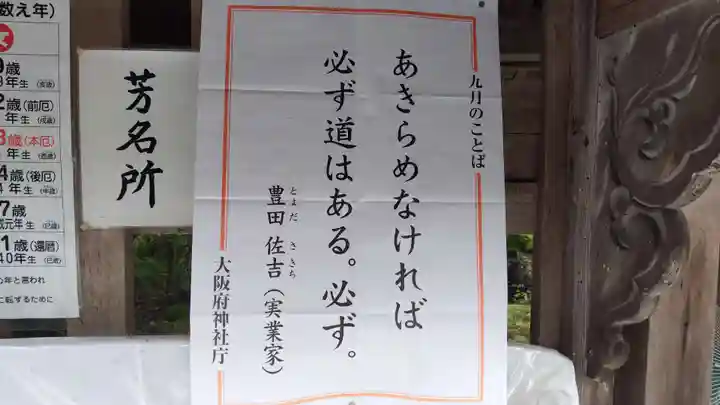 九月のことば
あきらめなければ
必ず道はある。必ず。
豊田 佐吉（実業家）
とよだ さきち
大阪府神社庁
芳名所
数え年）
女
9歳
年生（亥歳）
2歳（前厄）
年生（戌歳）
3歳（本厄）
年生（酉歳）
4歳（後厄）
4年生
7歳
成元年生（巳歳）
1歳（還暦）
40年生（巳歳）
年と言われ
に転ずるために